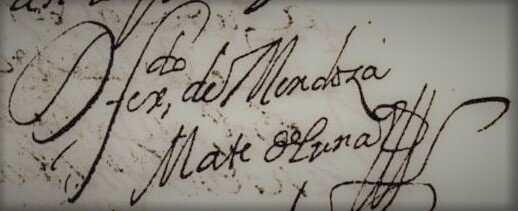 D Fer^do, de Mendoza
Mate de Luna